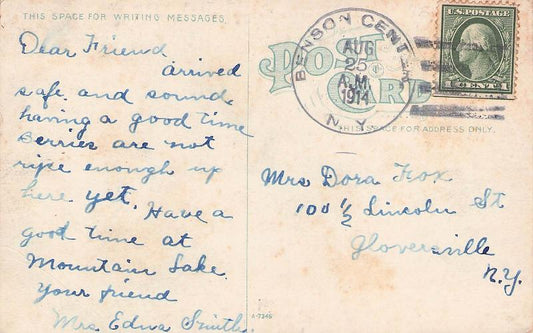 THIS SPACE FOR WRITING MESSAGES.
Dear Friend
arrived
safe and sound.
having a good time
berries are not
ripe enough up
here yet. Have a
good time at
Mountain Lake.
Your friend
Mrs. Edna Smith.
POST CARD
BENSON CENTER
AUG
25
A.M.
1914
N.Y.
U.S. POSTAGE
1 CENT 1
THIS SPACE FOR ADDRESS ONLY.
Mrs Dora Fox
100 1/2 Lincoln St
Gloversville
N.Y.
A-7345